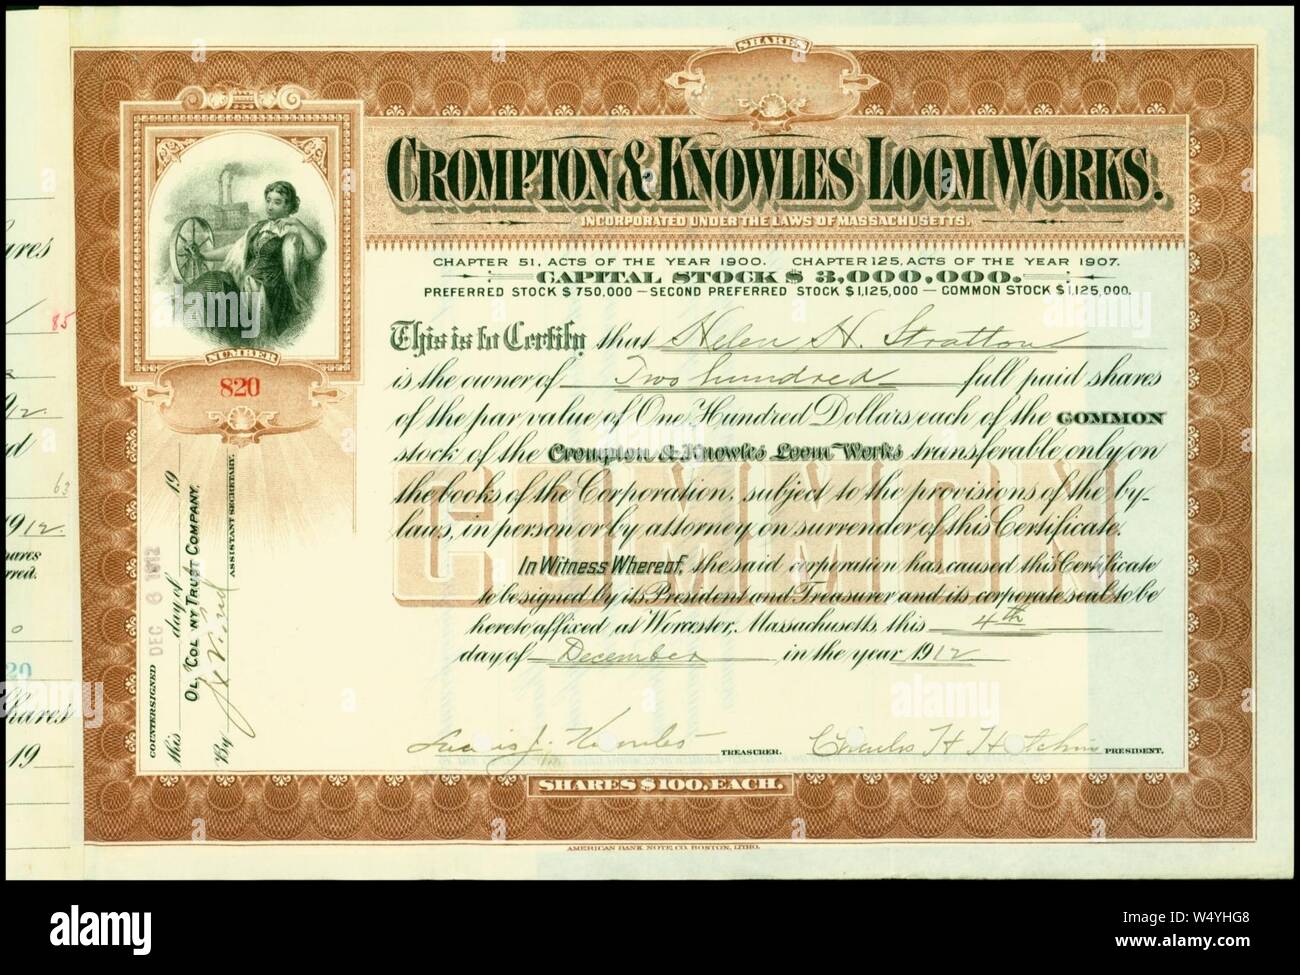 SHARES
CROMPTON & KNOWLES LOOM WORKS.
INCORPORATED UNDER THE LAWS OF MASSACHUSETTS.
CHAPTER 51, ACTS OF THE YEAR 1900. CHAPTER 125, ACTS OF THE YEAR 1907.
CAPITAL STOCK $ 3,000,000.
PREFERRED STOCK $ 750,000 — SECOND PREFERRED STOCK $ 1,125,000 — COMMON STOCK $ 1,125,000.
NUMBER
820
This is to Certify that Helen H. Stratton
is the owner of Two hundred full paid shares
of the par value of One Hundred Dollars each of the COMMON
stock of the Crompton & Knowles Loom Works transferable only on
the books of the Corporation, subject to the provisions of the by-
laws, in person or by attorney on surrender of this Certificate.
COMMON
In Witness Whereof, the said corporation has caused this Certificate
to be signed by its President and Treasurer and its corporate seal to be
hereto affixed at Worcester, Massachusetts, this 4th
day of December in the year 1912
TREASURER.
Charles H Hutchins PRESIDENT.
COUNTERSIGNED DEC 6 1912
this day of 19
OL' COLONY TRUST COMPANY.
By
ASSISTANT SECRETARY.
SHARES $100, EACH.
AMERICAN BANK NOTE CO. BOSTON, LITHO.
85
63
1912
20
19
alamy
alamy stock photo
W4YHG8
www.alamy.com